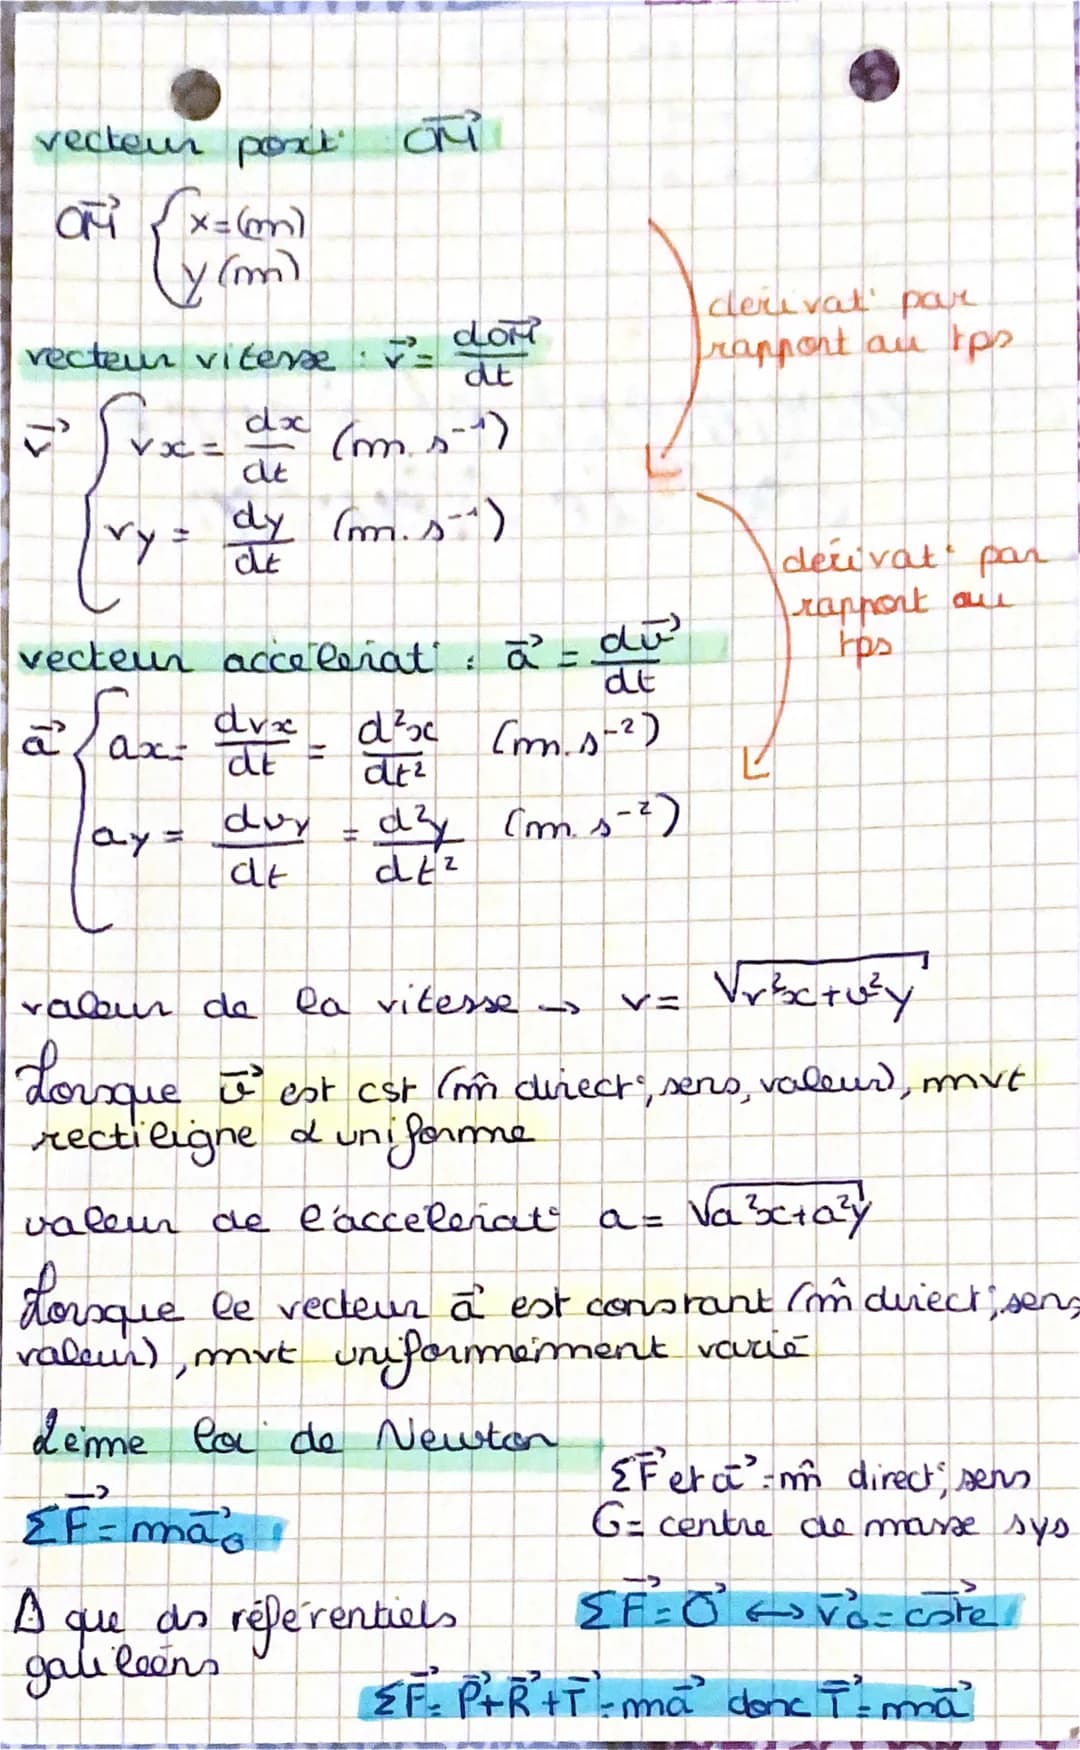 vecteur posit° OM⃗
OM⃗ { x = (m)
y (m)
derivat° par
rappont au tps
vecteur vitesse : v⃗ = dOM⃗/dt
v⃗ { vx = dx/dt (m.s⁻¹)
vy = dy/dt (m.s⁻¹)
dérivat° par
rapport au
tps
vecteur accélérat° : a⃗ = dv⃗/dt
a⃗ { ax = dvx/dt = d²x/dt² (m.s⁻²)
ay = dvy/dt = d²y/dt² (m.s⁻²)
valeur de la vitesse → v = √v²x+v²y
Lorsque v⃗ est cst (m̂ direct°, sens, valeur), mvt
rectiligne & uniforme
valeur de l'accélérat° a = √a²x+a²y
Lorsque le vecteur a⃗ est constant (m̂ direct°, sens
valeur), mvt uniformément varié
2eime loi de Newton
ΣF⃗ et a⃗ = m̂ direct°, sens
ΣF⃗ = ma⃗G
G = centre de masse sys
⚠ que ds référentiels
galiléens
ΣF⃗ = 0⃗ ↔ v⃗G = cste⃗
ΣF⃗ = P⃗+R⃗+T⃗ = ma⃗ donc T⃗ = ma⃗